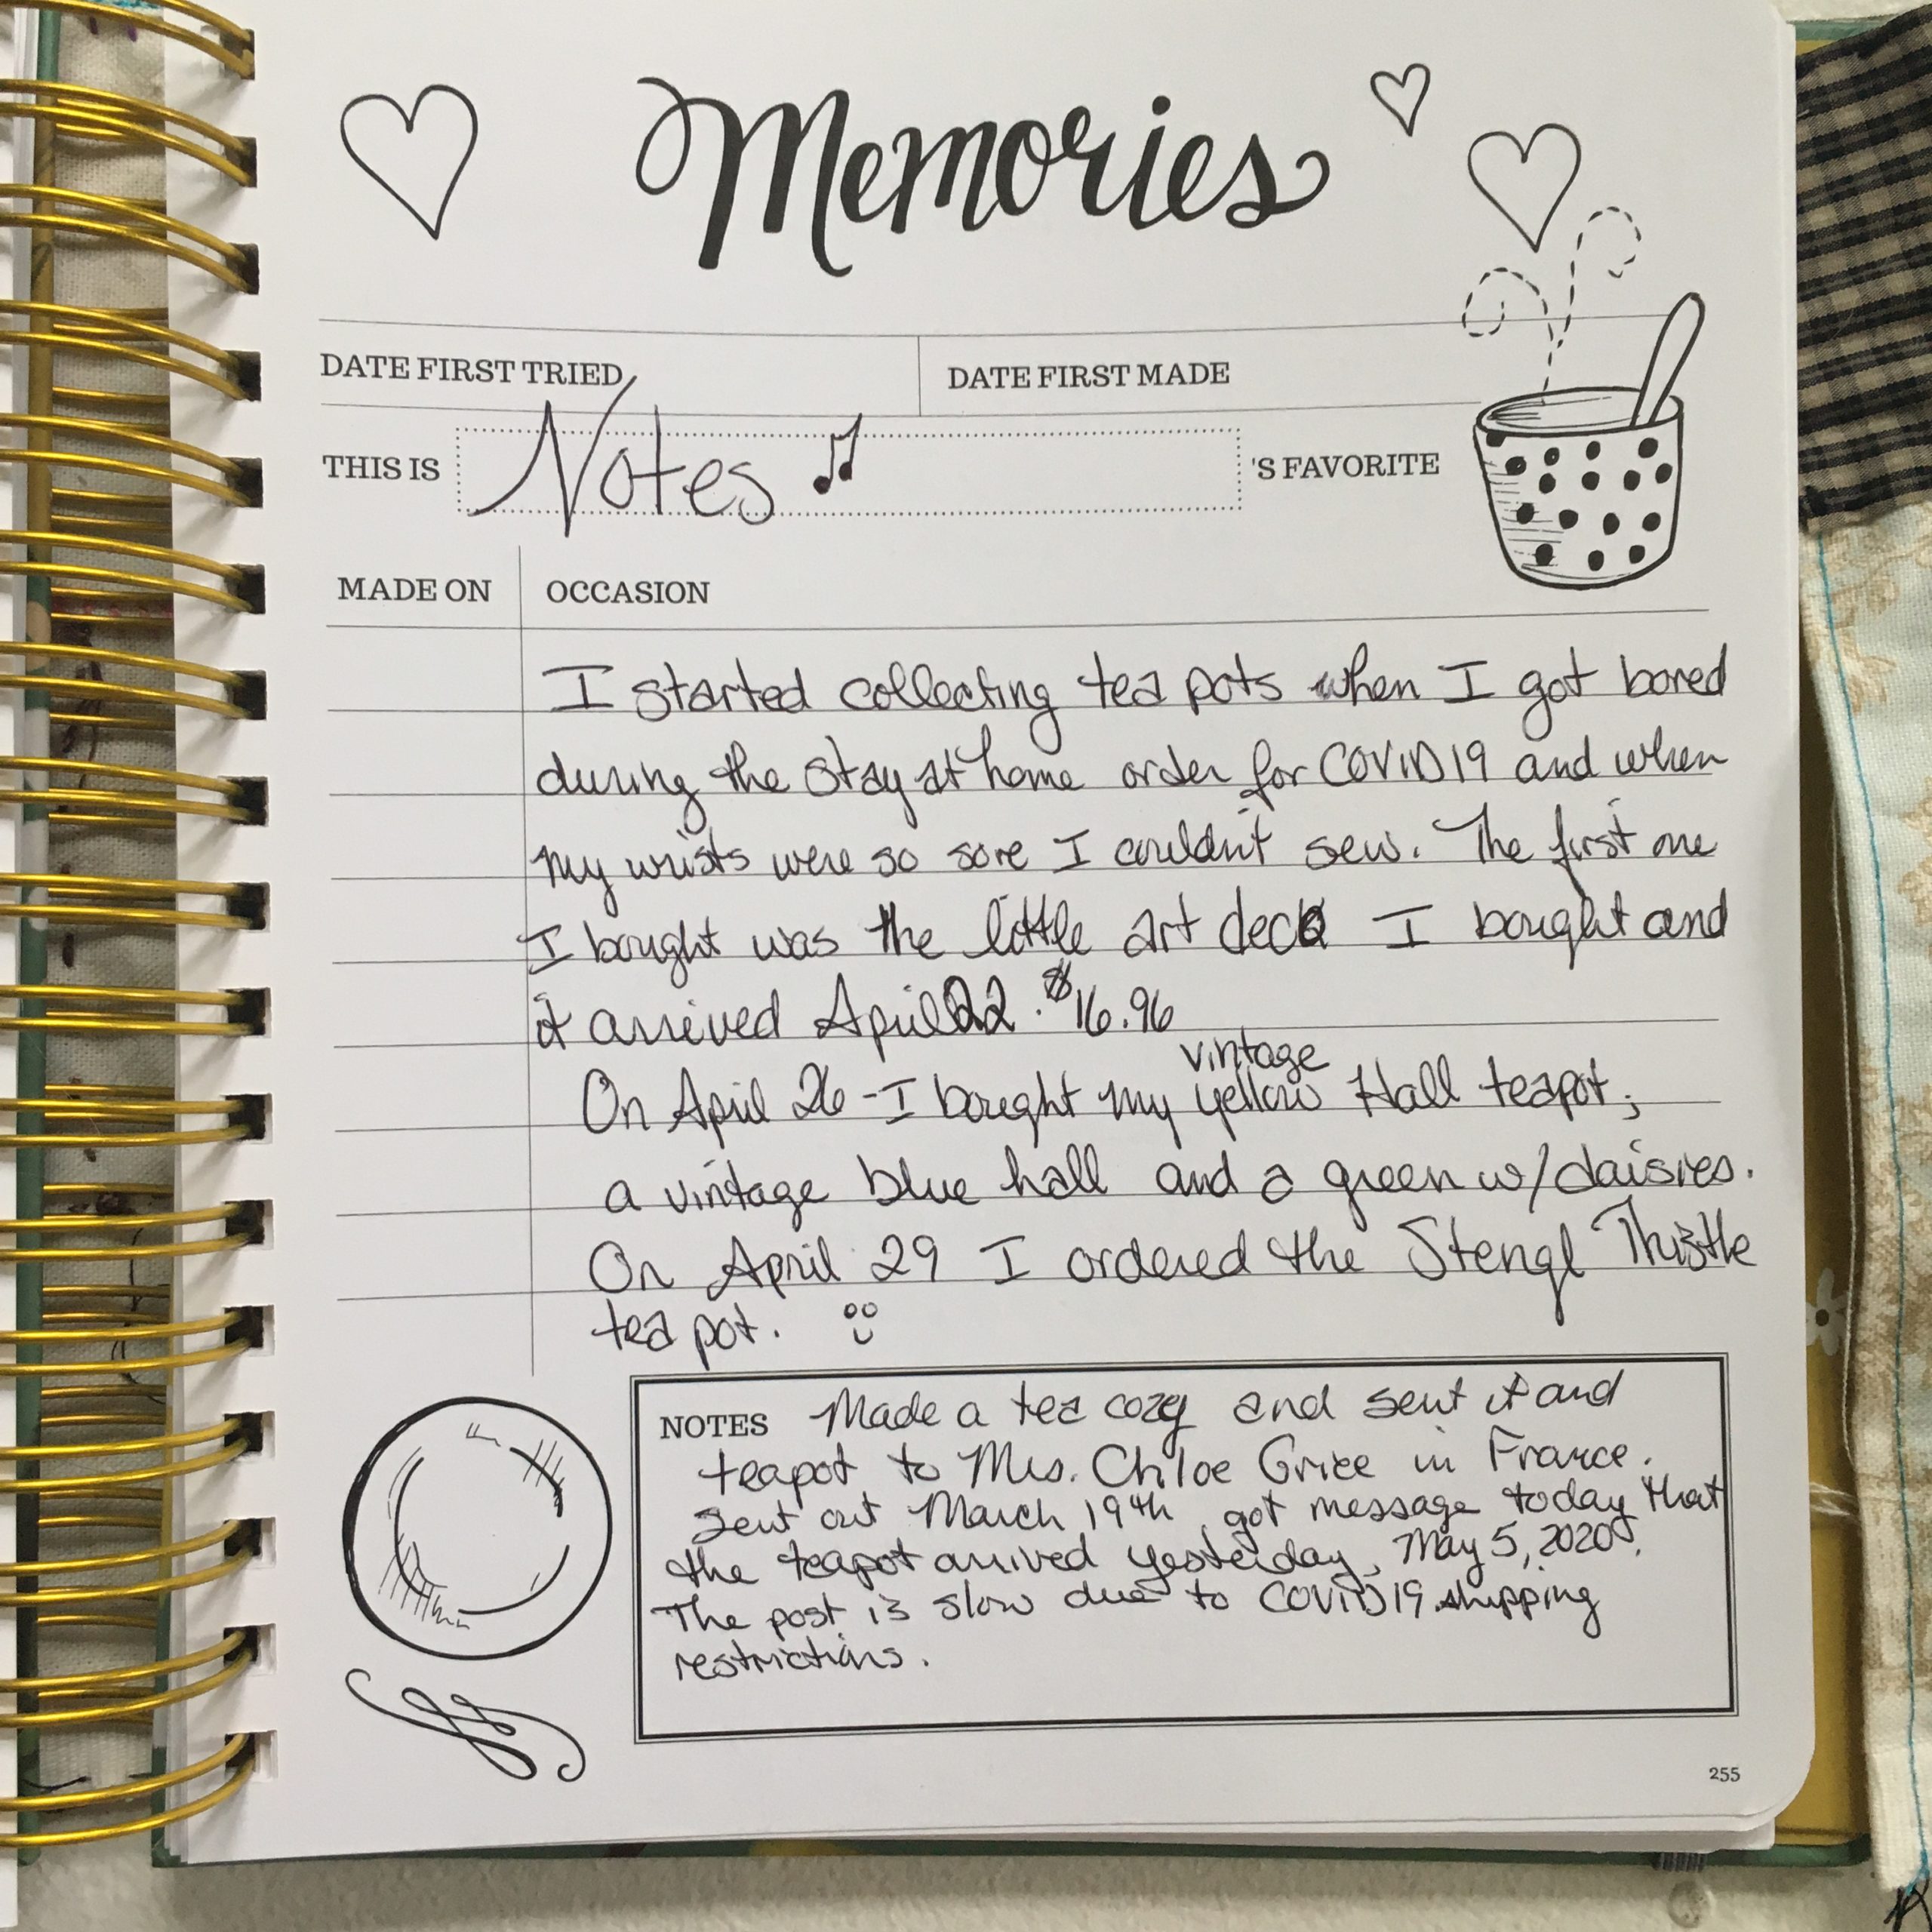 Memories
DATE FIRST TRIED DATE FIRST MADE
THIS IS Notes 'S FAVORITE
MADE ON OCCASION
I started collecting tea pots when I got bored
during the stay at home order for COVID19 and when
my wrists were so sore I couldn't sew. The first one
I bought was the little art deco I bought and
it arrived April 22. $16.96
vintage
On April 26 - I bought my yellow Hall teapot;
a vintage blue hall and a green w/daisies.
On April 29 I ordered the Stengl Thistle
tea pot.
NOTES Made a tea cozy and sent it and
teapot to Mrs. Chloe Grice in France.
Sent out March 19th, got message today that
the teapot arrived yesterday, May 5, 2020.
The post is slow due to COVID19 shipping
restrictions.
255